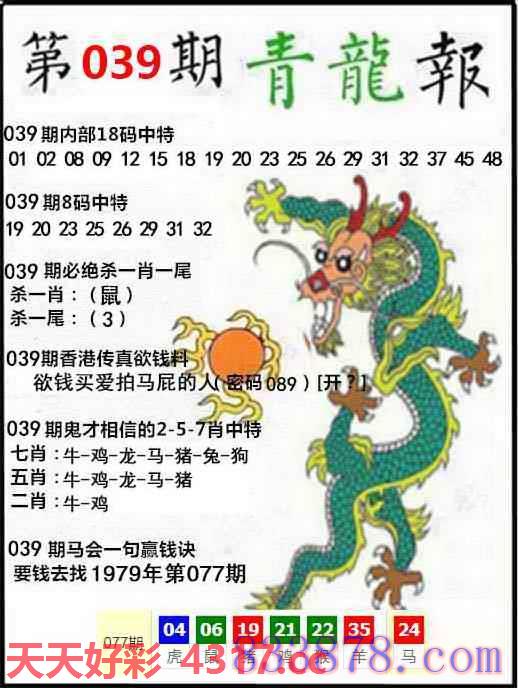 第039期青龍報
039期内部18码中特
01 02 08 09 12 15 18 19 20 23 25 26 29 31 32 37 45 48
039期8码中特
19 20 23 25 26 29 31 32
039 期必绝杀一肖一尾
杀一肖:(鼠)
杀一尾:(3)
039期香港传真欲钱料
欲钱买爱拍马屁的人(密码089)[开?]
039期鬼才相信的2-5-7肖中特
七肖:牛-鸡-龙-马-猪-兔-狗
五肖:牛-鸡-龙-马-猪
二肖:牛-鸡
039 期马会一句赢钱诀
要钱去找1979年第077期
077期 04 06 19 21 22 35 24
虎 鼠 猪 鸡 猴 羊 马
天天好彩 4317.cc